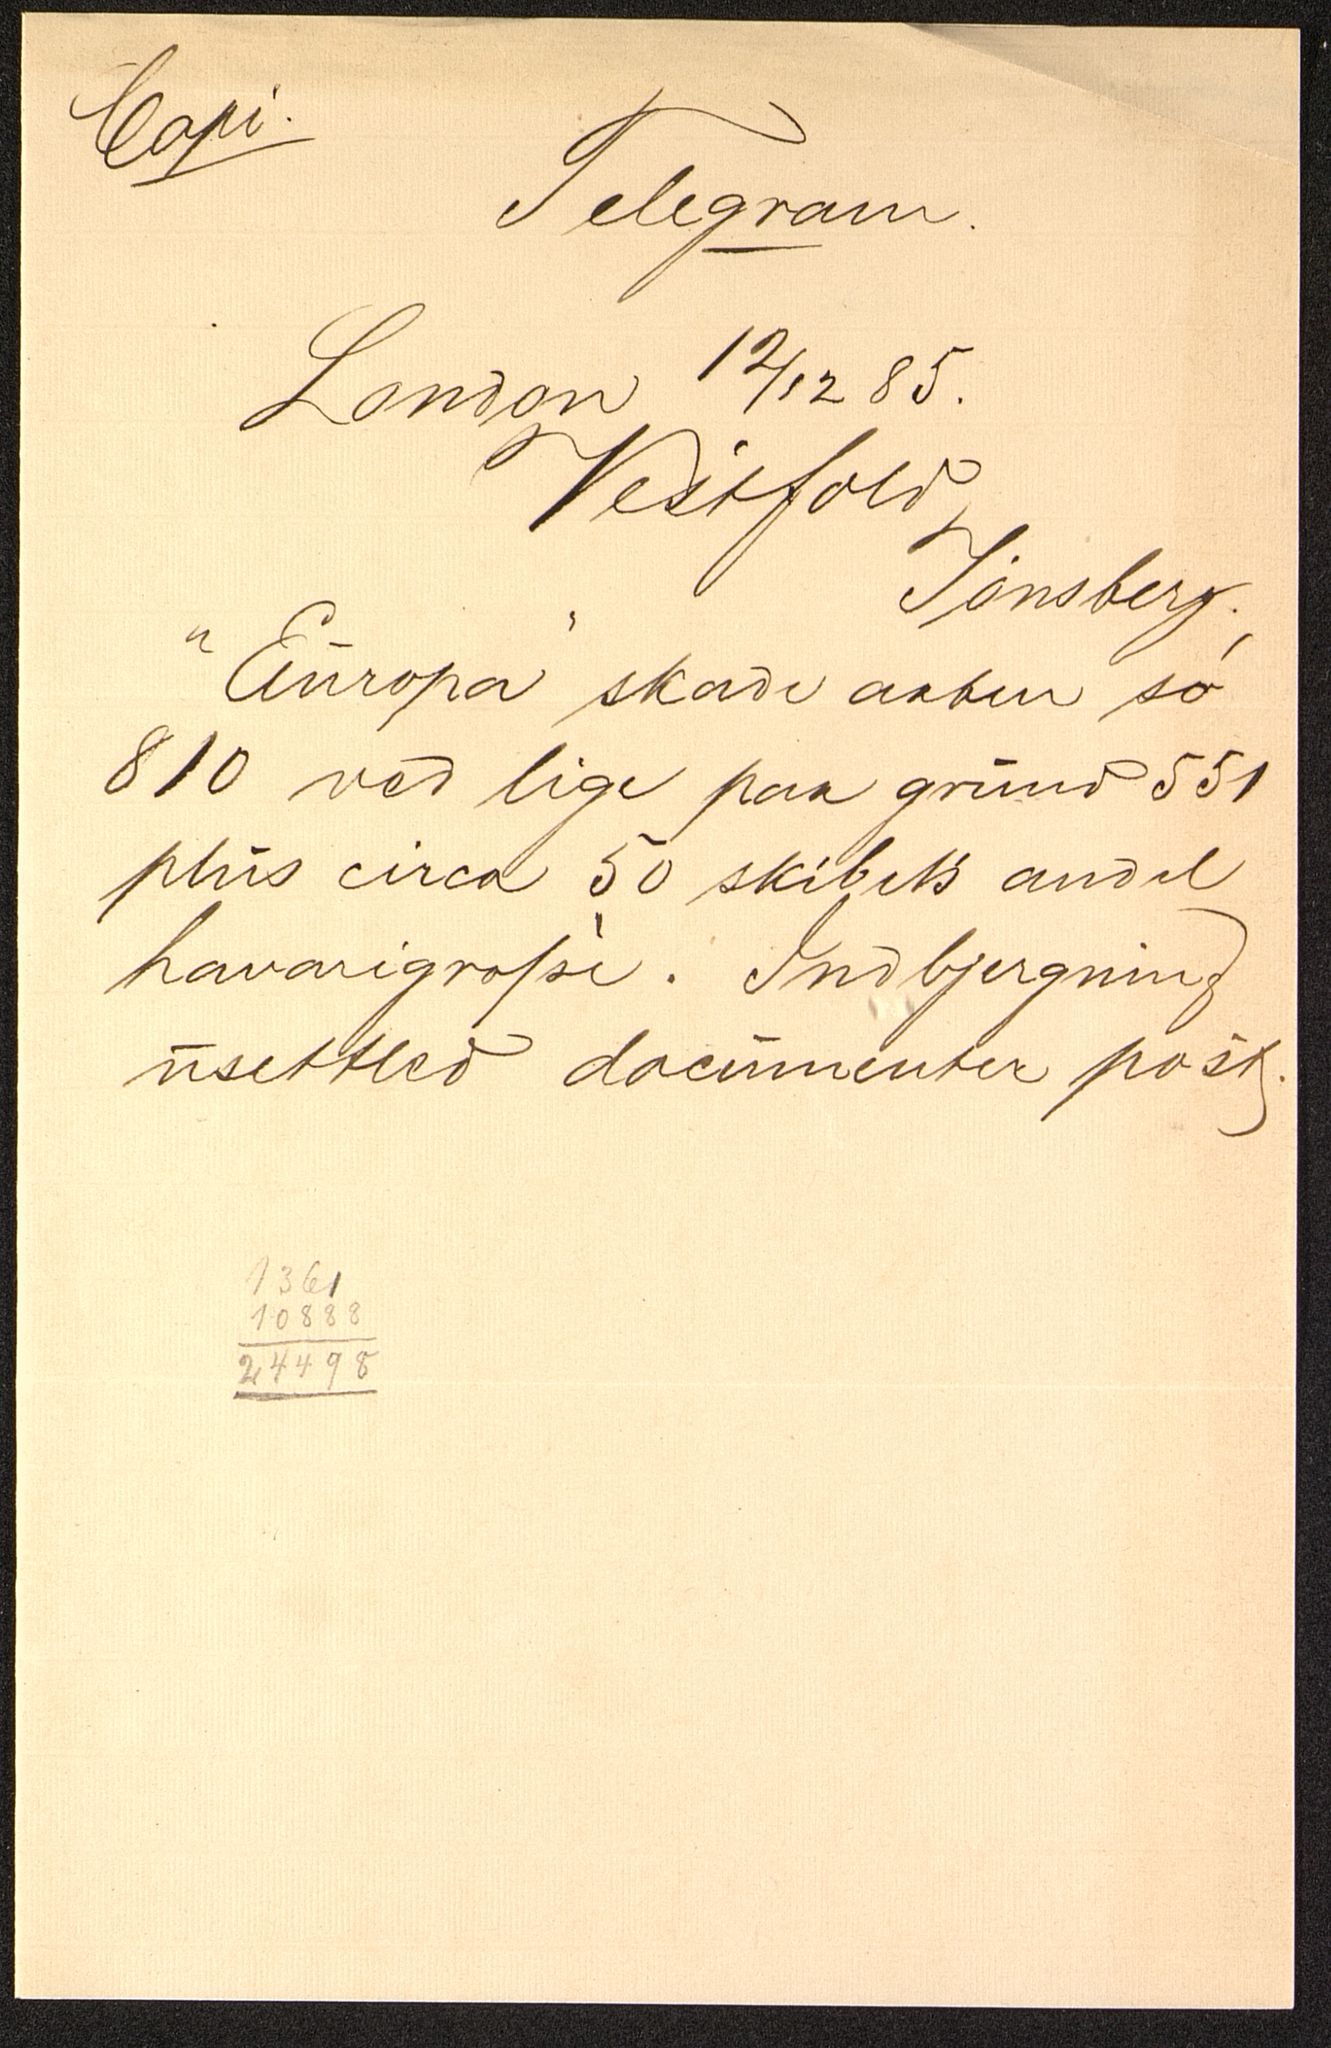 Copi.
Telegram.
London 12/12 85.
Vestfold,
Tönsberg.
"Europa" skade aaben sö
810 ved lige paa grund 551
plus circa 50 skibets andel
havarigrosse. Indbjergning
usettled documenter post.
1361
10888
24498